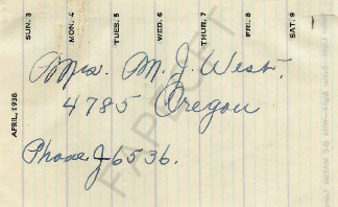 SUN. 3 MON. 4 TUES. 5 WED. 6 THUR. 7 FRI. 8 SAT. 9
APRIL, 1938
Mrs. M. J. West.
4785 Oregon
Phone J-6536.